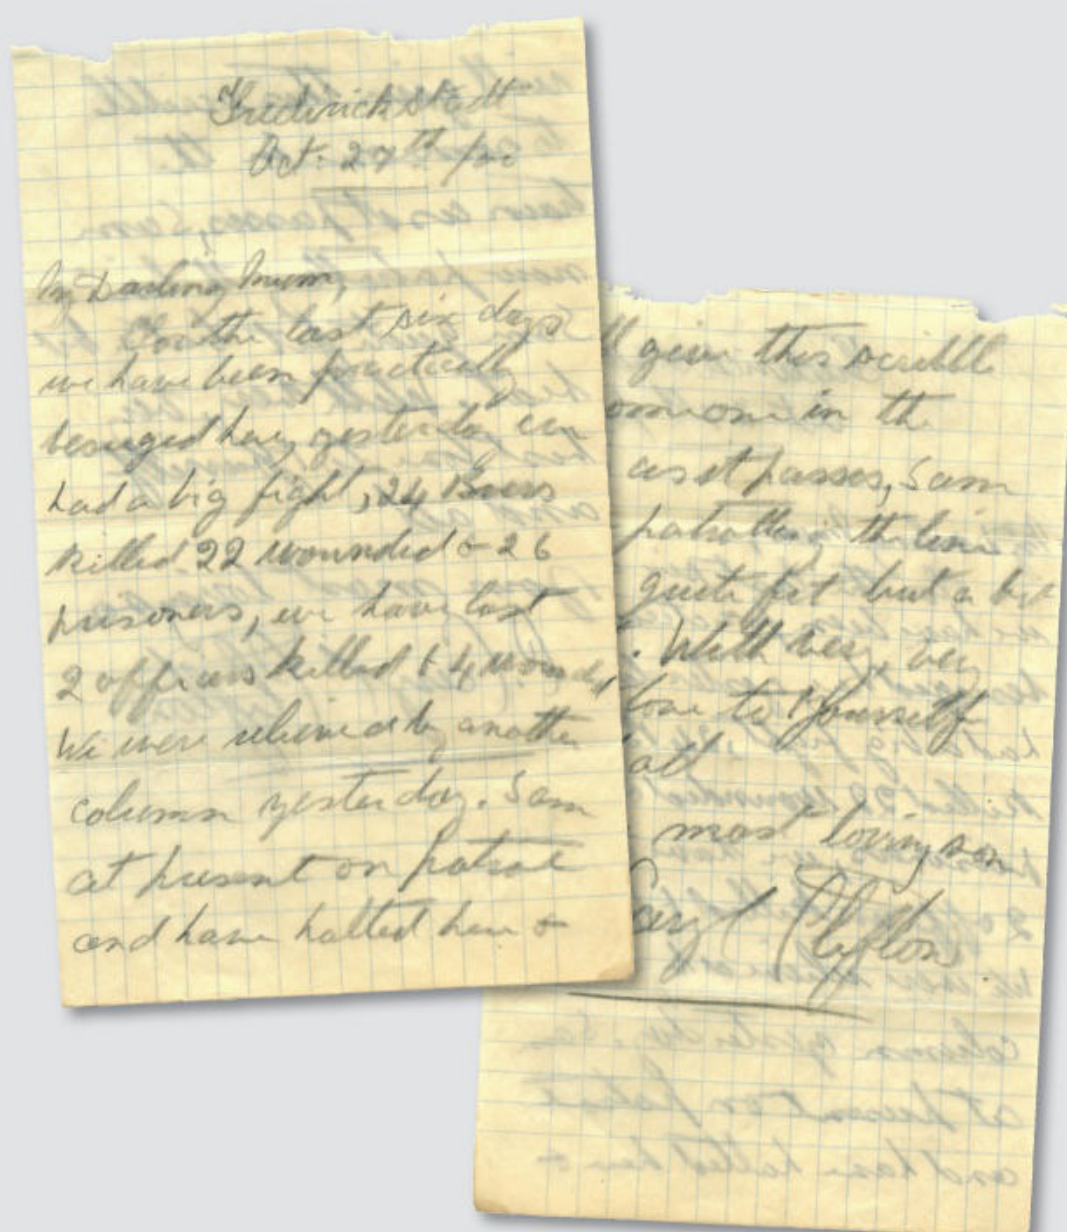 Frederickstadt
Oct. 27th /00
My Darling Mum,
For the last six days
we have been practically
besieged here, yesterday we
had a big fight, 24 Boers
killed 22 wounded & 26
prisoners, we have lost
2 officers killed & 4 wounded
We were relieved by another
column yesterday. I am
at present on patrol
and have halted here &
ll give this scribble
omeone in th
as it passes, I am
patrolling the line
quite fit but a bit
With very, very
love to yourself
all
most loving son
Clifton